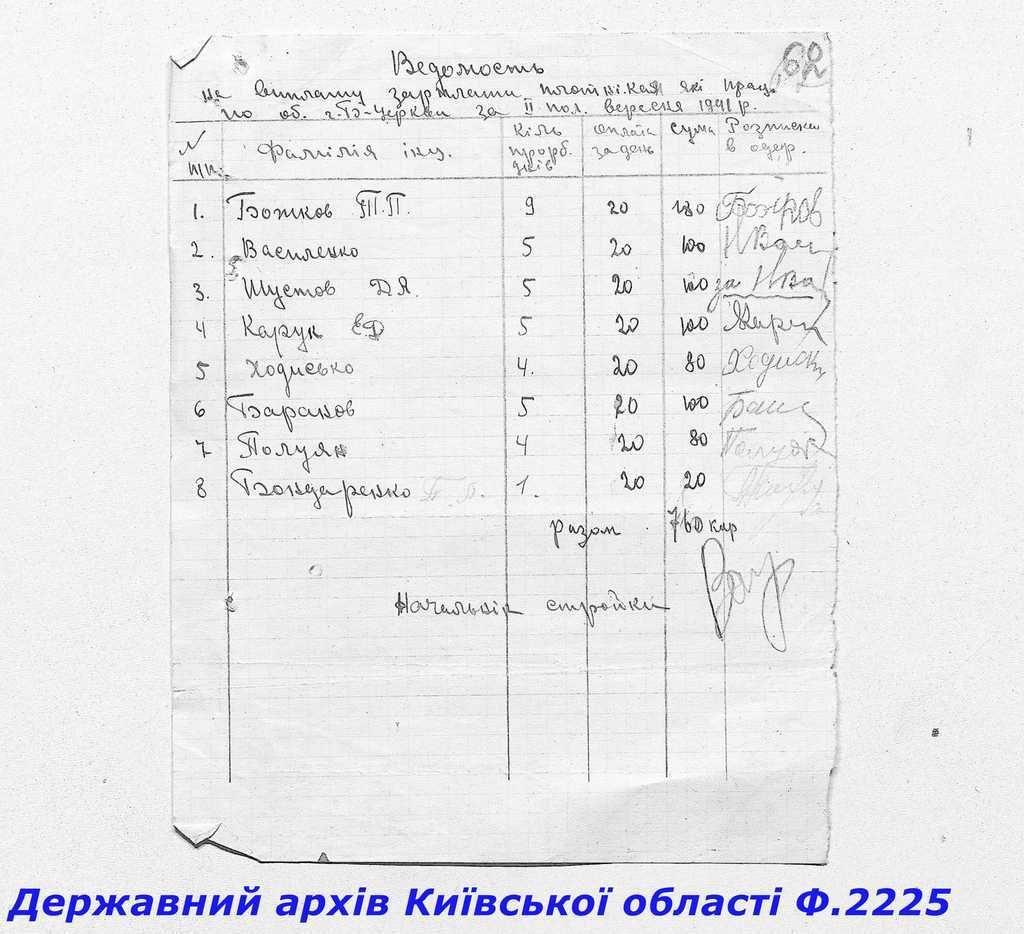 62
Ведомость
на виплату зарплати плотнікам які прац.
по об. г. Б-Церкви за II пол. вересня 1941 р.
N п/п. Фамілія іни. Кіль прорб. дків оплата за день сума Розписка в одер.
1. Божков Т.П. 9 20 180 Божков
2. Василенко 5 20 100 НВас
3. Шустов Д Я. 5 20 100 за НВа
4 Карук ЄФ 5 20 100 Карук
5 Ходисько 4. 20 80 Ходиськ
6 Бараков 5 20 100 Бара
7 Полуян 4 20 80 Полуян
8 Бондаренко Т. П. 1. 20 20
разом 760 кар
Начальнік стройки
Державний архів Київської області Ф.2225